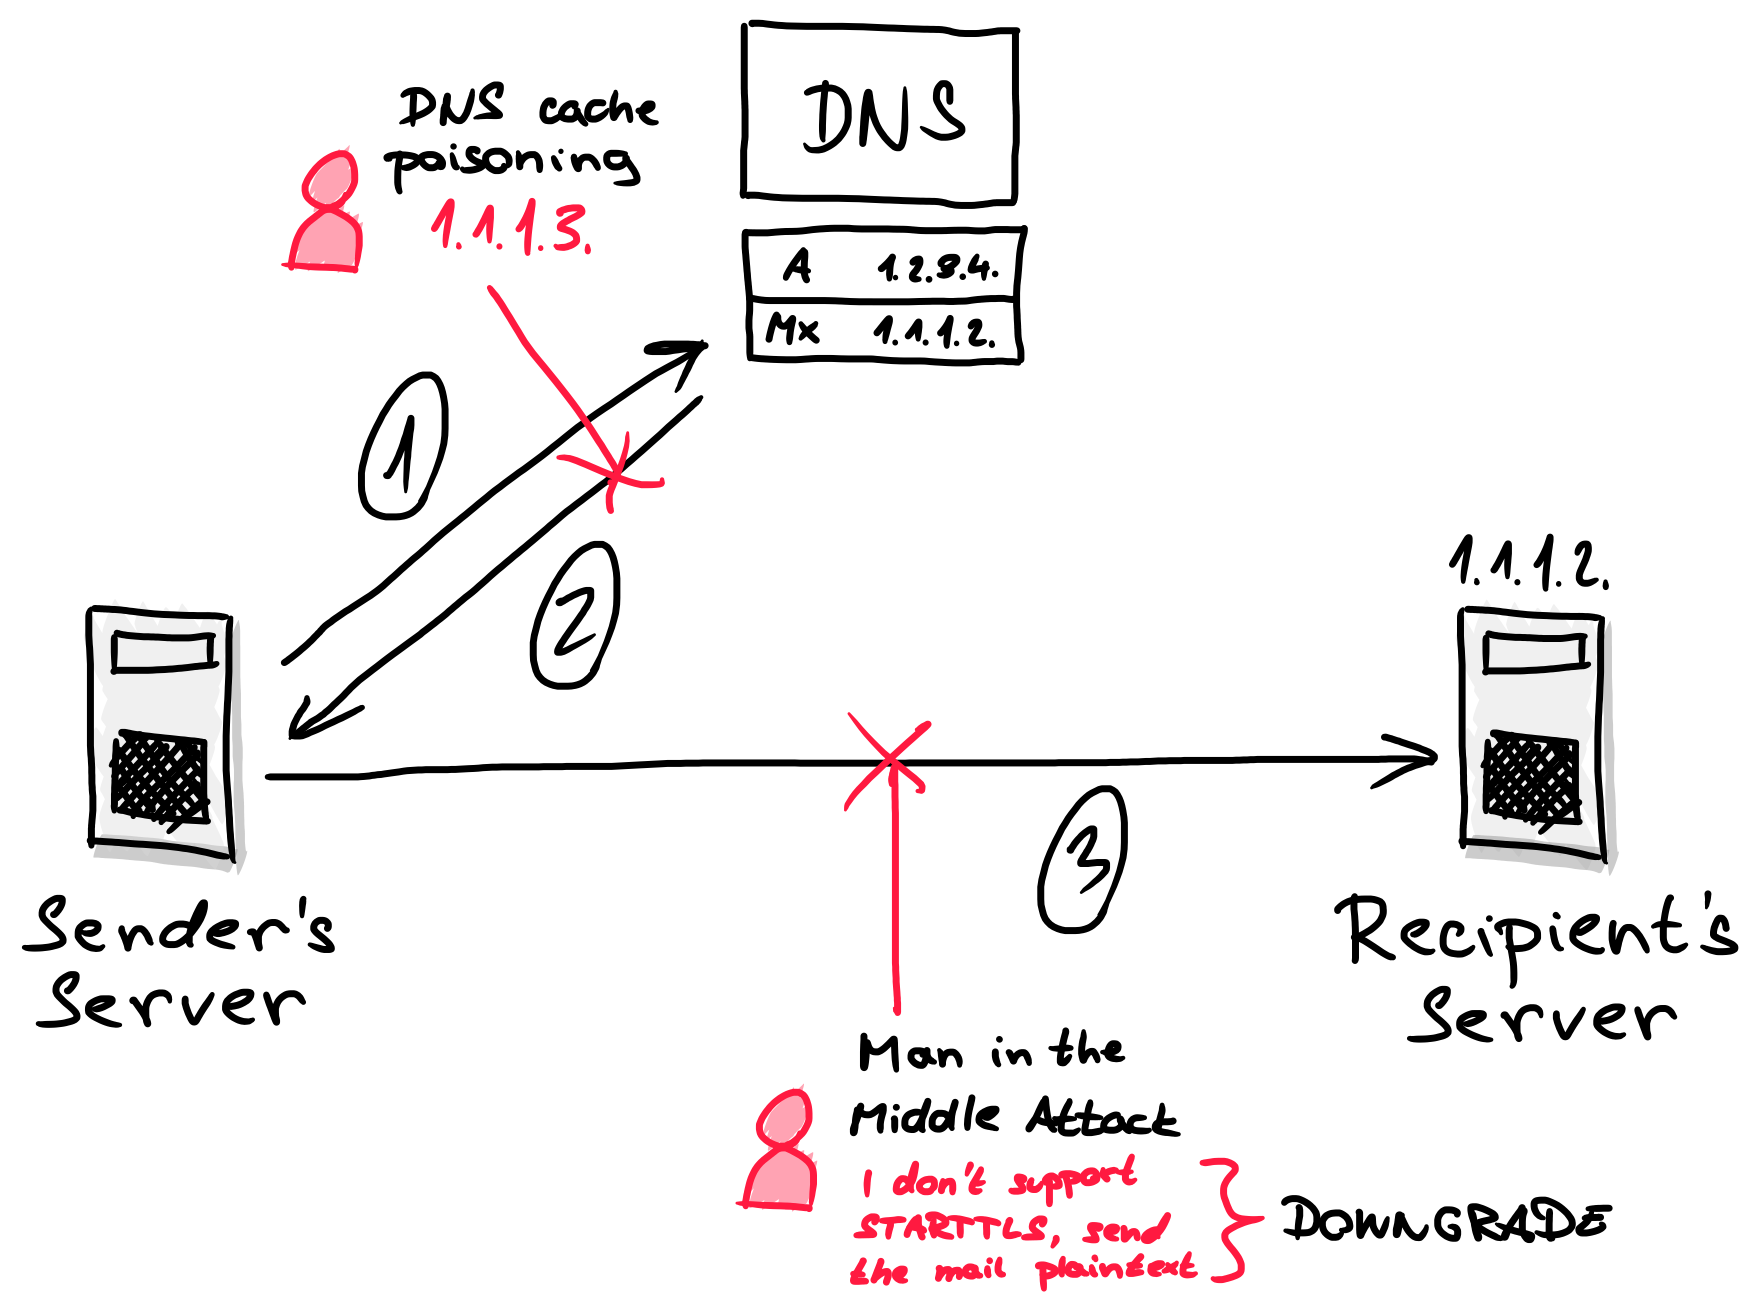 DNS
DNS cache
poisoning
1.1.1.3.
A 1.2.3.4.
Mx 1.1.1.2.
1
2
3
1.1.1.2.
Sender's
Server
Recipient's
Server
Man in the
Middle Attack
I don't support
STARTTLS, send
the mail plaintext
DOWNGRADE